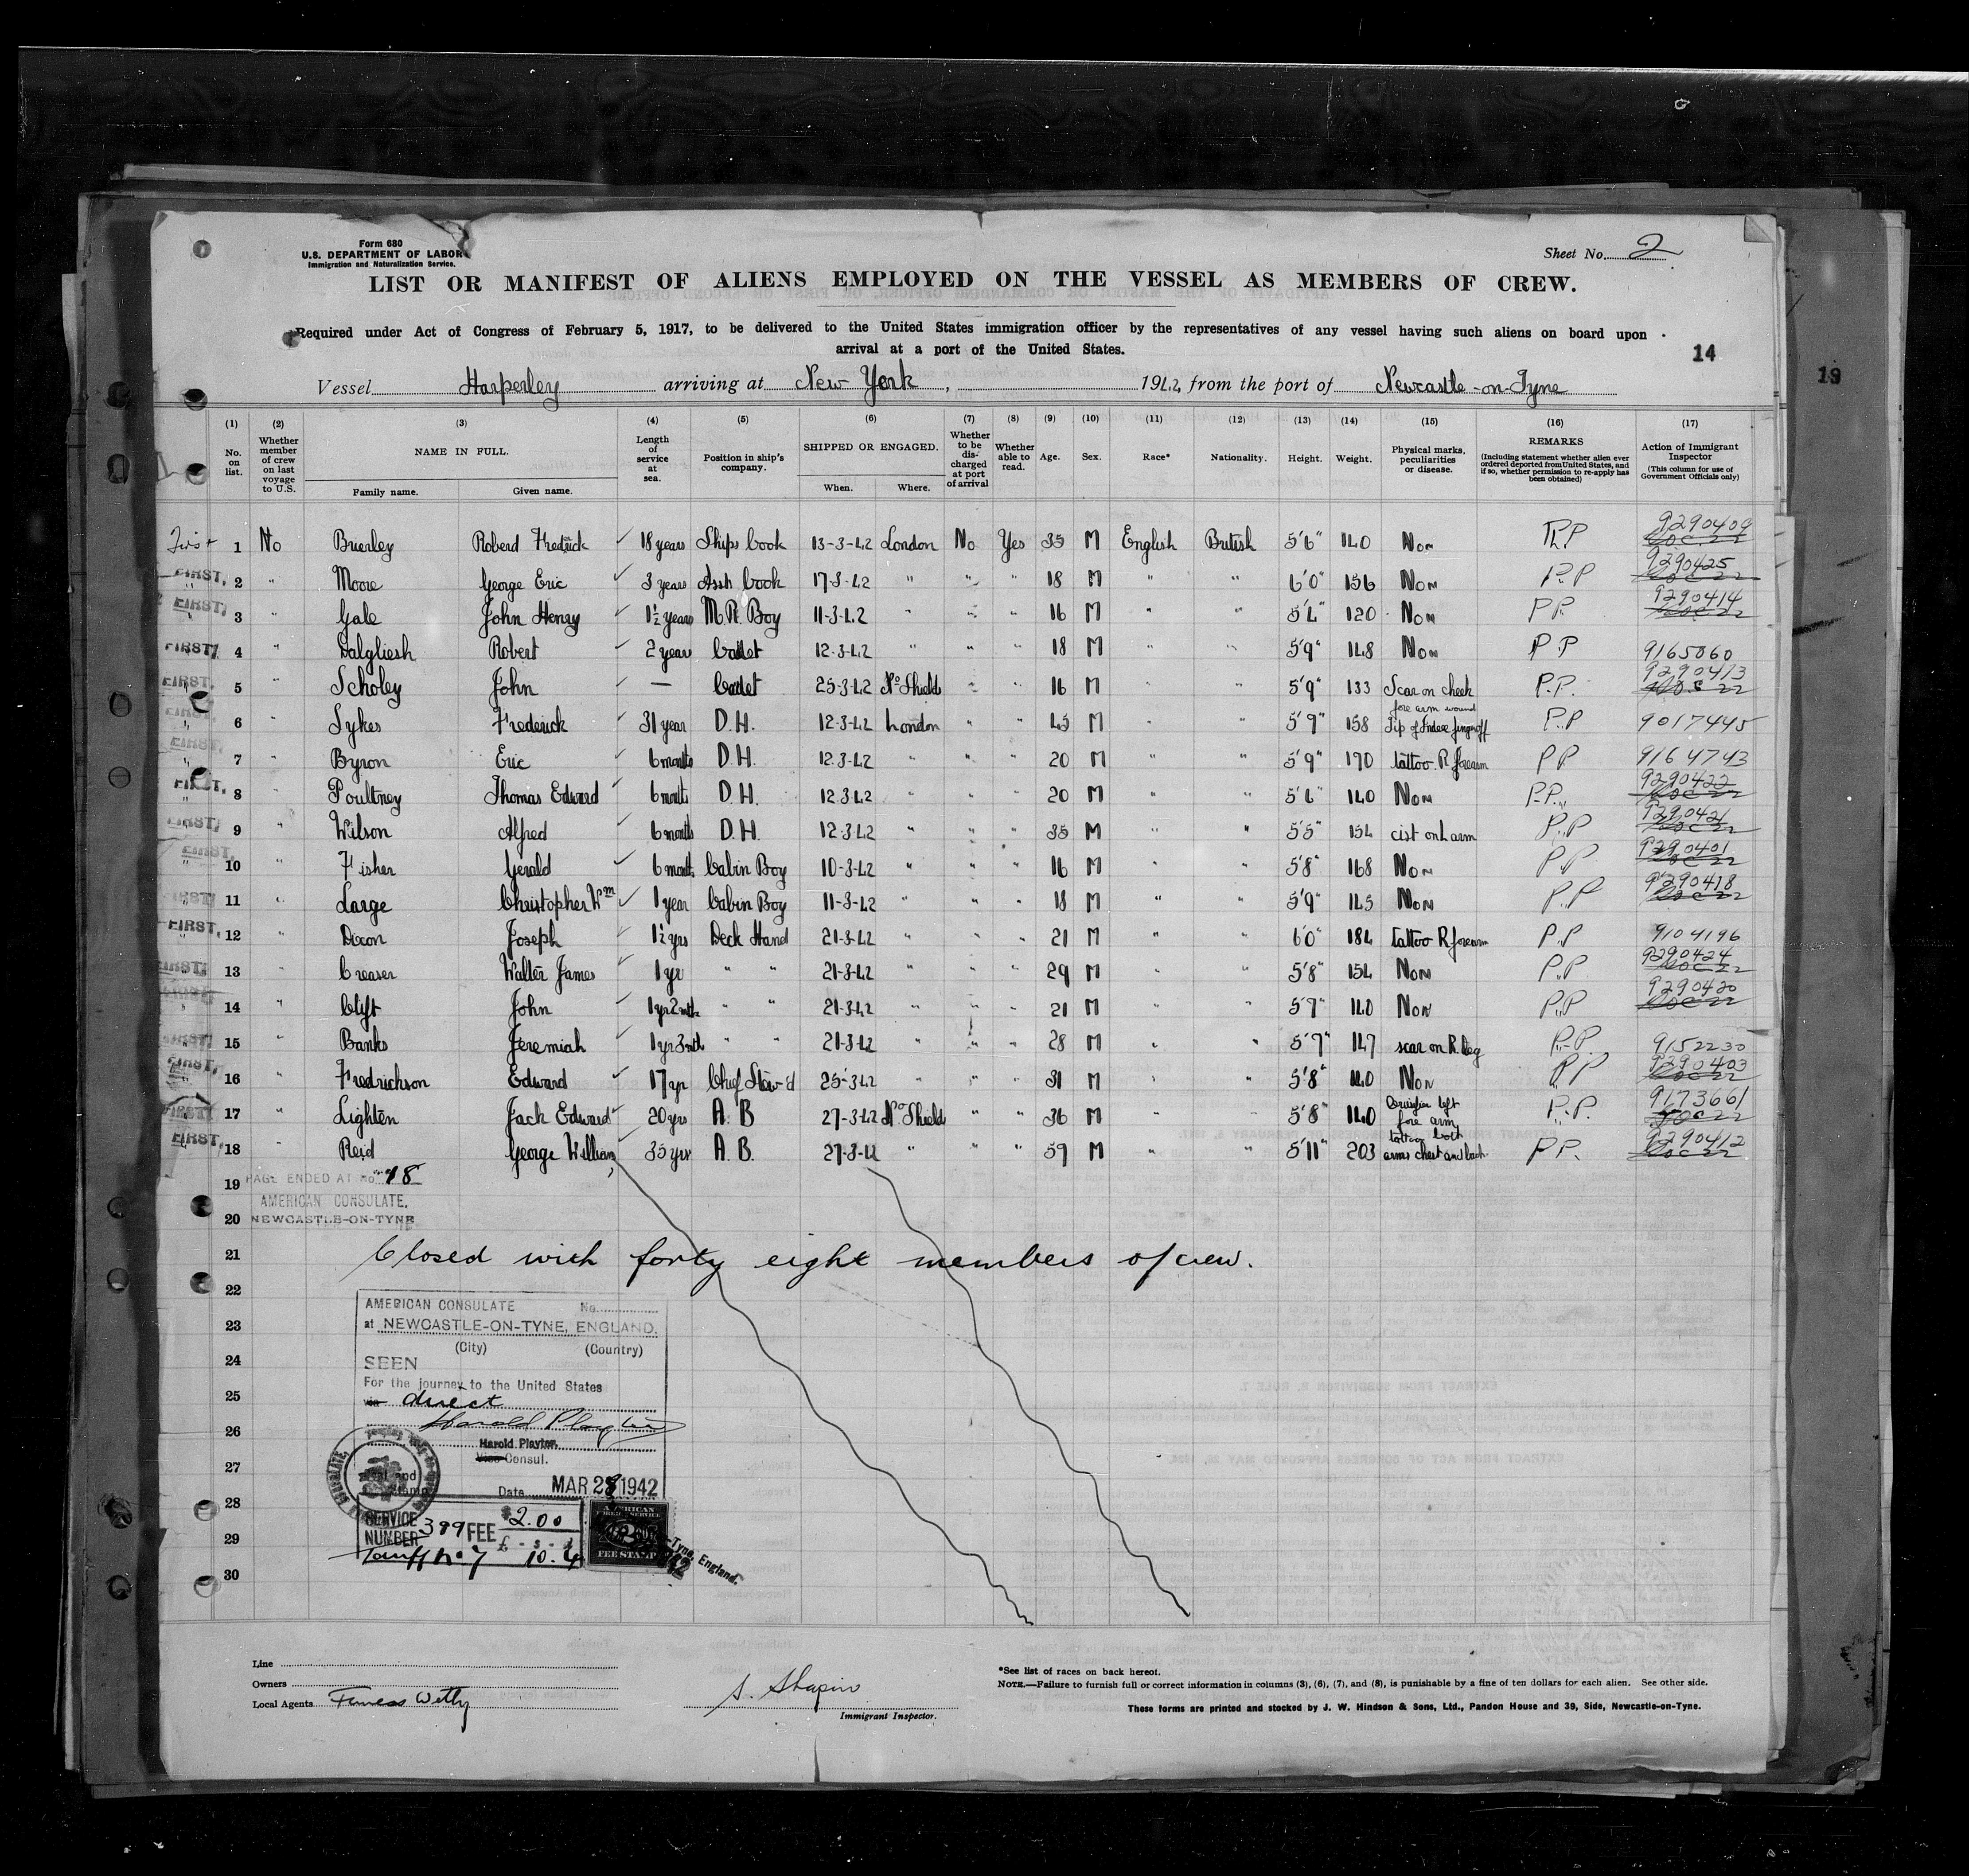 Form 680
U.S. DEPARTMENT OF LABOR
Immigration and Naturalization Service.
Sheet No. 2
LIST OR MANIFEST OF ALIENS EMPLOYED ON THE VESSEL AS MEMBERS OF CREW.
Required under Act of Congress of February 5, 1917, to be delivered to the United States immigration officer by the representatives of any vessel having such aliens on board upon
arrival at a port of the United States.
14
19
Vessel Harperley arriving at New York, 1942, from the port of Newcastle-on-Tyne
(1) (2) (3) (4) (5) (6) (7) (8) (9) (10) (11) (12) (13) (14) (15) (16) (17)
No. on list. Whether member of crew on last voyage to U.S. NAME IN FULL. Family name. Given name. Length of service at sea. Position in ship's company. SHIPPED OR ENGAGED. When. Where. Whether to be discharged at port of arrival Whether able to read. Age. Sex. Race* Nationality. Height. Weight. Physical marks, peculiarities or disease. REMARKS (Including statement whether alien ever ordered deported from United States, and if so, whether permission to re-apply has been obtained) Action of Immigrant Inspector (This column for use of Government Officials only)
First 1 No Brierley Roberd Fredrick 18 years Ships Cook 13-3-42 London No Yes 35 M English British 5'6" 140 Non P.P 9290409
FIRST, 2 " Moore George Eric 3 years Asst Cook 17-3-42 " " " 18 M " " 6'0" 156 Non P.P 9290425
FIRST, 3 " Gale John Henry 1½ years M.R. Boy 11-3-42 " " " 16 M " " 5'4" 120 Non P.P. 9290414
FIRST, 4 " Dalgliesh Robert 2 year Cadet 12-3-42 " " " 18 M " " 5'9" 148 Non P.P 9165060
FIRST, 5 " Scholey John — Cadet 25-3-42 No Shields " " 16 M " " 5'9" 133 Scar on cheek P.P. 9290413
FIRST, 6 " Sykes Frederick 31 year D.H. 12-3-42 London " " 45 M " " 5'9" 158 fore arm wound Tip of Index finger off P.P 9017445
FIRST, 7 " Byron Eric 6 months D.H. 12.3.42 " " " 20 M " " 5'9" 170 tattoo R forearm P.P 9164743
FIRST, 8 " Poultney Thomas Edward 6 months D.H. 12.3.42 " " " 20 M " " 5'6" 140 Non P.P. 9290422
FIRST, 9 " Wilson Alfred 6 months D.H. 12-3-42 " " " 35 M " " 5'5" 154 cist on L arm P.P 9290421
FIRST, 10 " Fisher Gerald 6 month Cabin Boy 10-3-42 " " " 16 M " " 5'8" 168 Non P.P 9290401
FIRST, 11 " Large Christopher Wm 1 year Cabin Boy 11-3-42 " " " 18 M " " 5'9" 145 Non P.P 9290418
FIRST, 12 " Dixon Joseph 1½ yrs Deck Hand 21-3-42 " " " 21 M " " 6'0" 184 tattoo R forearm P.P 9104196
FIRST, 13 " Creaser Walter James 1 yr " " 21-3-42 " " " 29 M " " 5'8" 154 Non P.P 9290424
14 " Clift John 1 yr 2 mth " " 21-3-42 " " " 21 M " " 5'7" 140 Non P.P 9290420
FIRST, 15 " Banks Jeremiah 1 yr 3 mth " " 21-3-42 " " " 28 M " " 5'7" 147 scar on R. leg P.P. 9152230
FIRST, 16 " Fredrickson Edward 17 yr Chief Stew'd 25-3-42 " " " 31 M " " 5'8" 140 Non P.P 9290403
FIRST, 17 " Lighten Jack Edward 20 yrs A. B 27-3-42 No Shields " " 36 M " " 5'8" 140 left fore arm P.P. 9173661
FIRST, 18 " Reid George William 35 yrs A. B. 27-3-42 " " " 59 M " " 5'11" 203 tattoo both arms chest and back P.P. 9290412
19 PAGE ENDED AT No. 18
AMERICAN CONSULATE,
20 NEWCASTLE-ON-TYNE
21 Closed with forty eight members of crew.
22
AMERICAN CONSULATE No.
23 at NEWCASTLE-ON-TYNE, ENGLAND.
(City) (Country)
24 SEEN
For the journey to the United States
25 via direct
26 Harold Playter
Harold Playter,
Vice Consul.
27
Date MAR 28 1942
28 SERVICE NUMBER 399 FEE $2.00
29 Tariff No 7 10.4
AMERICAN FOREIGN SERVICE FEE STAMP
-Tyne, England.
30
Line
Owners
Local Agents Furness Withy
S. Shapiro
Immigrant Inspector.
*See list of races on back hereof.
NOTE.—Failure to furnish full or correct information in columns (3), (6), (7), and (8), is punishable by a fine of ten dollars for each alien. See other side.
These forms are printed and stocked by J. W. Hindson & Sons, Ltd., Pandon House and 39, Side, Newcastle-on-Tyne.